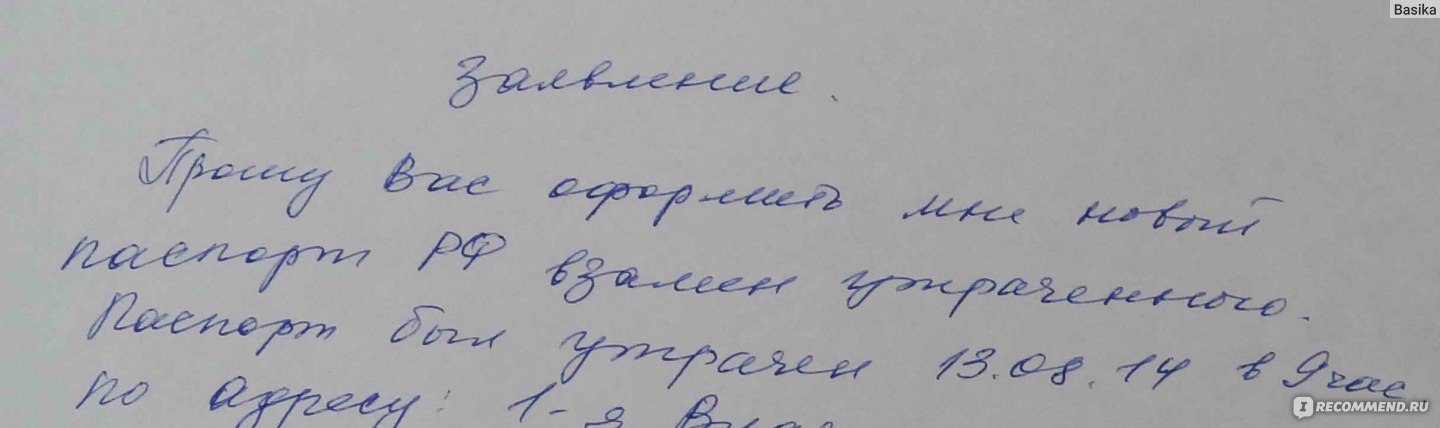 Basika
Заявление.
Прошу Вас оформить мне новый
паспорт РФ взамен утраченного.
Паспорт был утрачен 13.08.14 в 9 час
по адресу: 1-я
IRECOMMEND.RU